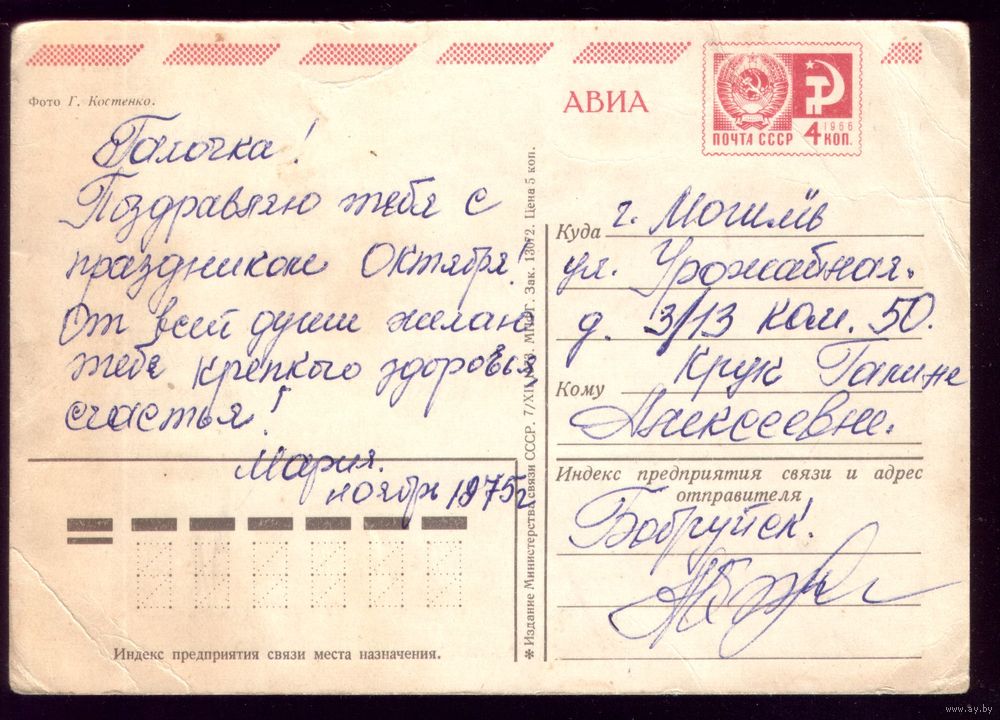 Фото Г. Костенко.
АВИА
ПОЧТА СССР
1966
4 КОП.
Галочка!
Поздравляю тебя с
праздником Октября!
От всей души желаю
тебе крепкого здоровья,
счастья!
Мария.
ноябрь 1975г
Индекс предприятия связи места назначения.
✻ Издание Министерства связи СССР. 7/XII-73. МПФГ. Зак. 13672. Цена 5 коп.
Куда г. Могилёв
ул. Урожайная.
д. 3/13 ком. 50.
Крук Галине
Кому Алексеевне.
Индекс предприятия связи и адрес
отправителя
Бобруйск.
www.ay.by